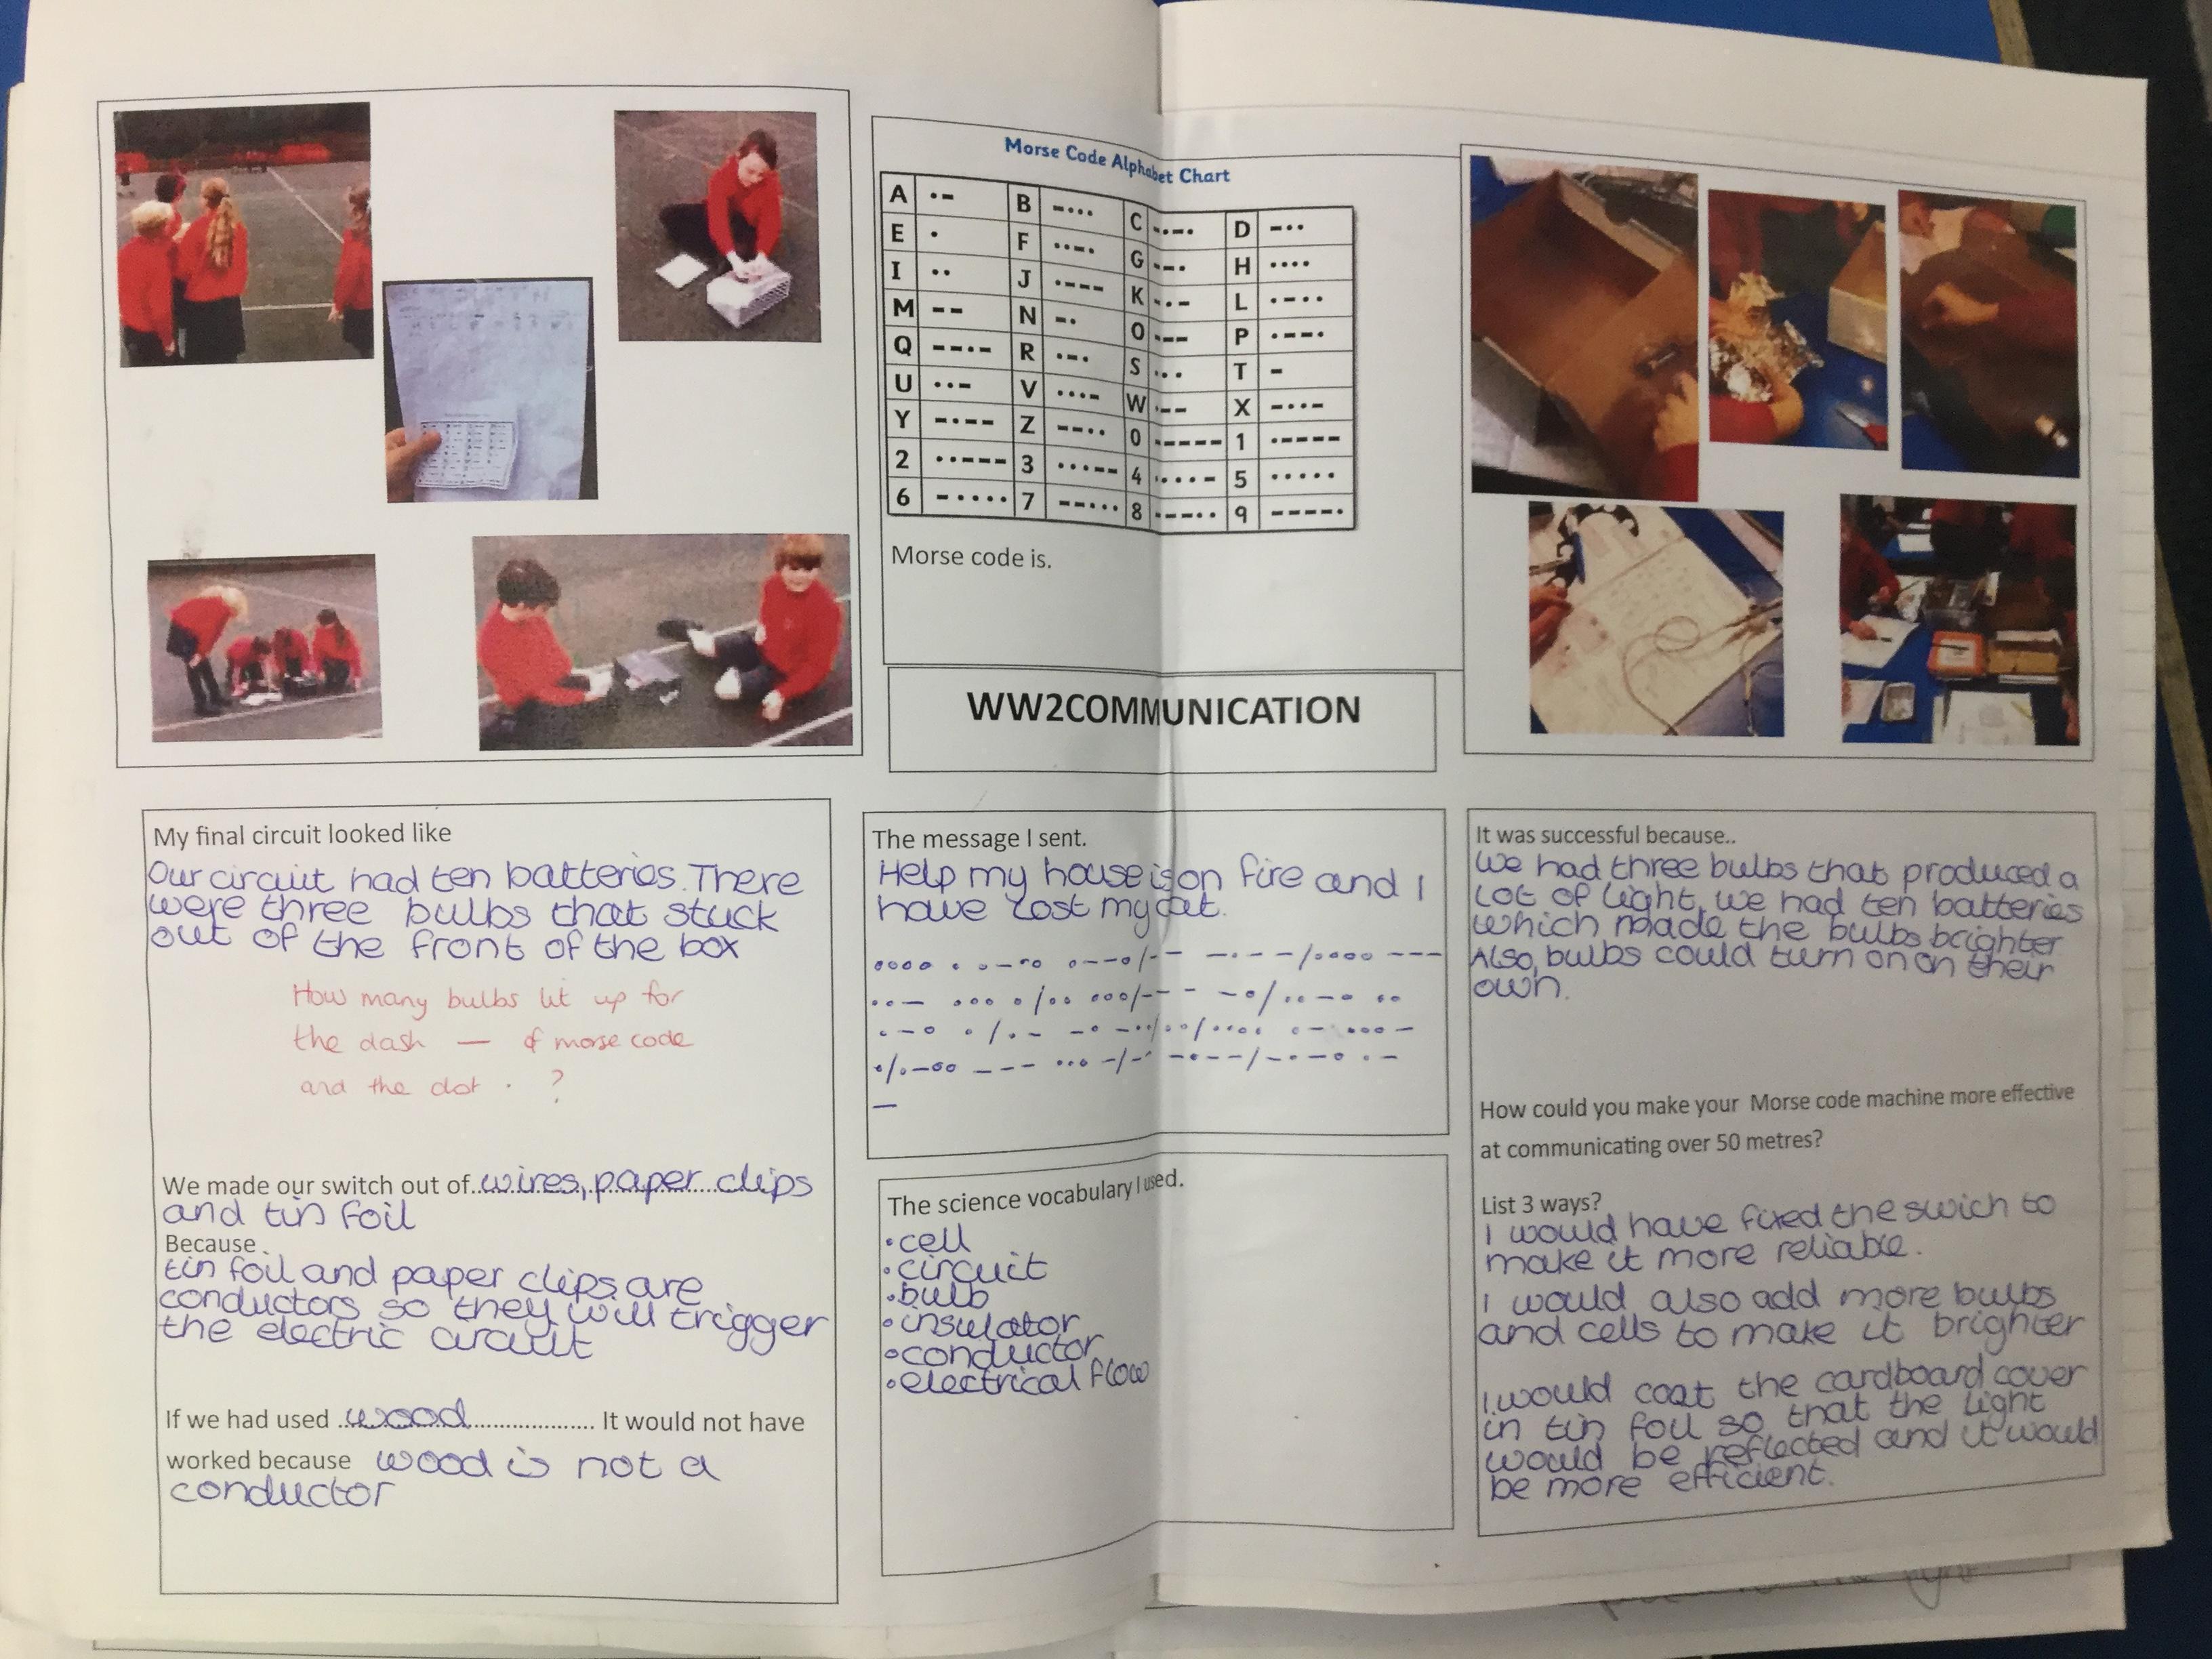 Morse Code Alphabet Chart
A •– B –••• C –•–• D –••
E • F ••–• G ––• H ••••
I •• J •––– K –•– L •–••
M –– N –• O ––– P •––•
Q ––•– R •–• S ••• T –
U ••– V •••– W •–– X –••–
Y –•–– Z ––•• 0 ––––– 1 •––––
2 ••––– 3 •••–– 4 ••••– 5 •••••
6 –•••• 7 ––••• 8 –––•• 9 ––––•
Morse code is.
WW2COMMUNICATION
My final circuit looked like
Our circuit had ten batteries. There
were three bulbs that stuck
out of the front of the box
How many bulbs lit up for
the dash — of morse code
and the dot . ?
We made our switch out of wires, paper clips
and tin foil
Because
tin foil and paper clips are
conductors so they will trigger
the electric circuit
If we had used wood It would not have
worked because wood is not a
conductor
The message I sent.
Help my house is on fire and I
have lost my cat.
The science vocabulary I used.
• cell
• circuit
• bulb
• insulator
• conductor
• electrical flow
It was successful because..
We had three bulbs that produced a
lot of light, we had ten batteries
which made the bulbs brighter
Also, bulbs could turn on on their
own.
How could you make your Morse code machine more effective
at communicating over 50 metres?
List 3 ways?
I would have fixed the swich to
make it more reliable.
I would also add more bulbs
and cells to make it brighter
I would coat the cardboard cover
in tin foil so that the light
would be reflected and it would
be more efficient.